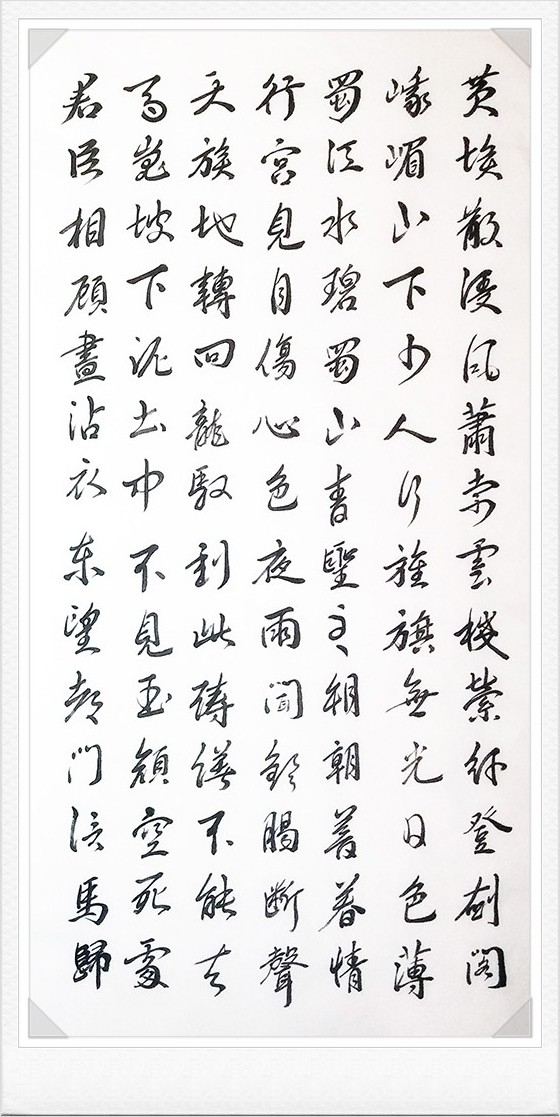 黄埃散漫風蕭索雲棧縈紆登劍閣
峨嵋山下少人行旌旗無光日色薄
蜀江水碧蜀山青聖主朝朝暮暮情
行宮見月傷心色夜雨聞鈴腸斷聲
天旋地轉回龍馭到此躊躇不能去
馬嵬坡下泥土中不見玉顏空死處
君臣相顧盡沾衣東望都門信馬歸